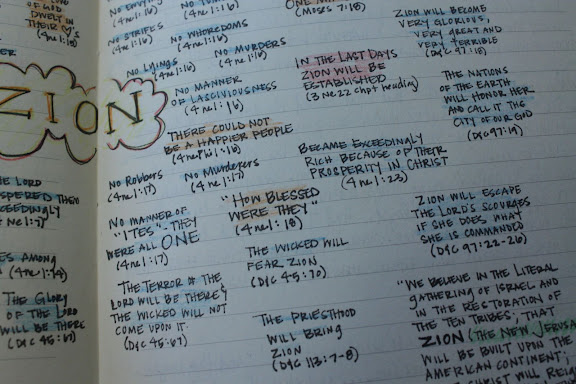 OF GOD
DWELT IN
THEIR ♥'S
(4 NE 1:15)
ZION
THE LORD
THEM
(4 NE 1:7)
AMONG
THE GLORY
OF THE LORD
WILL BE THERE
(D&C 45:67)
NO ENVYING
(4 NE 1:16)
NO STRIFES
(4 NE 1:16)
NO LYINGS
(4 NE 1:16)
(4 NE 1:16)
NO WHOREDOMS
(4 NE 1:16)
NO MURDERS
(4 NE 1:16)
NO MANNER
OF LASCIVIOUSNESS
(4 NE 1:16)
THERE COULD NOT
BE A HAPPIER PEOPLE
(4 NE 1:16)
NO ROBBERS
(4 NE 1:17)
NO MURDERERS
(4 NE 1:17)
NO MANNER OF
"ITES" - THEY
WERE ALL ONE
(4 NE 1:17)
"HOW BLESSED
WERE THEY"
(4 NE 1:18)
THE TERROR OF THE
LORD WILL BE THERE &
THE WICKED WILL NOT
COME UPON IT
(D&C 45:67)
THE WICKED WILL
FEAR ZION
(D&C 45:70)
THE PRIESTHOOD
WILL BRING
ZION
(D&C 113:7-8)
(MOSES 7:18)
IN THE LAST DAYS
ZION WILL BE
ESTABLISHED
(3 NE 22 CHPT HEADING)
BECAME EXCEEDINGLY
RICH BECAUSE OF THEIR
PROSPERITY IN CHRIST
(4 NE 1:23)
ZION WILL BECOME
VERY GLORIOUS,
VERY GREAT AND
VERY TERRIBLE
(D&C 97:18)
THE NATIONS
OF THE EARTH
WILL HONOR HER
AND CALL IT THE
CITY OF OUR GOD
(D&C 97:19)
ZION WILL ESCAPE
THE LORD'S SCOURGES
IF SHE DOES WHAT
SHE IS COMMANDED
(D&C 97:22-26)
"WE BELIEVE IN THE LITERAL
GATHERING OF ISRAEL AND
IN THE RESTORATION OF
THE TEN TRIBES; THAT
ZION (THE NEW JERUSA
WILL BE BUILT UPON THE
AMERICAN CONTINENT;
CHRIST WILL REIG